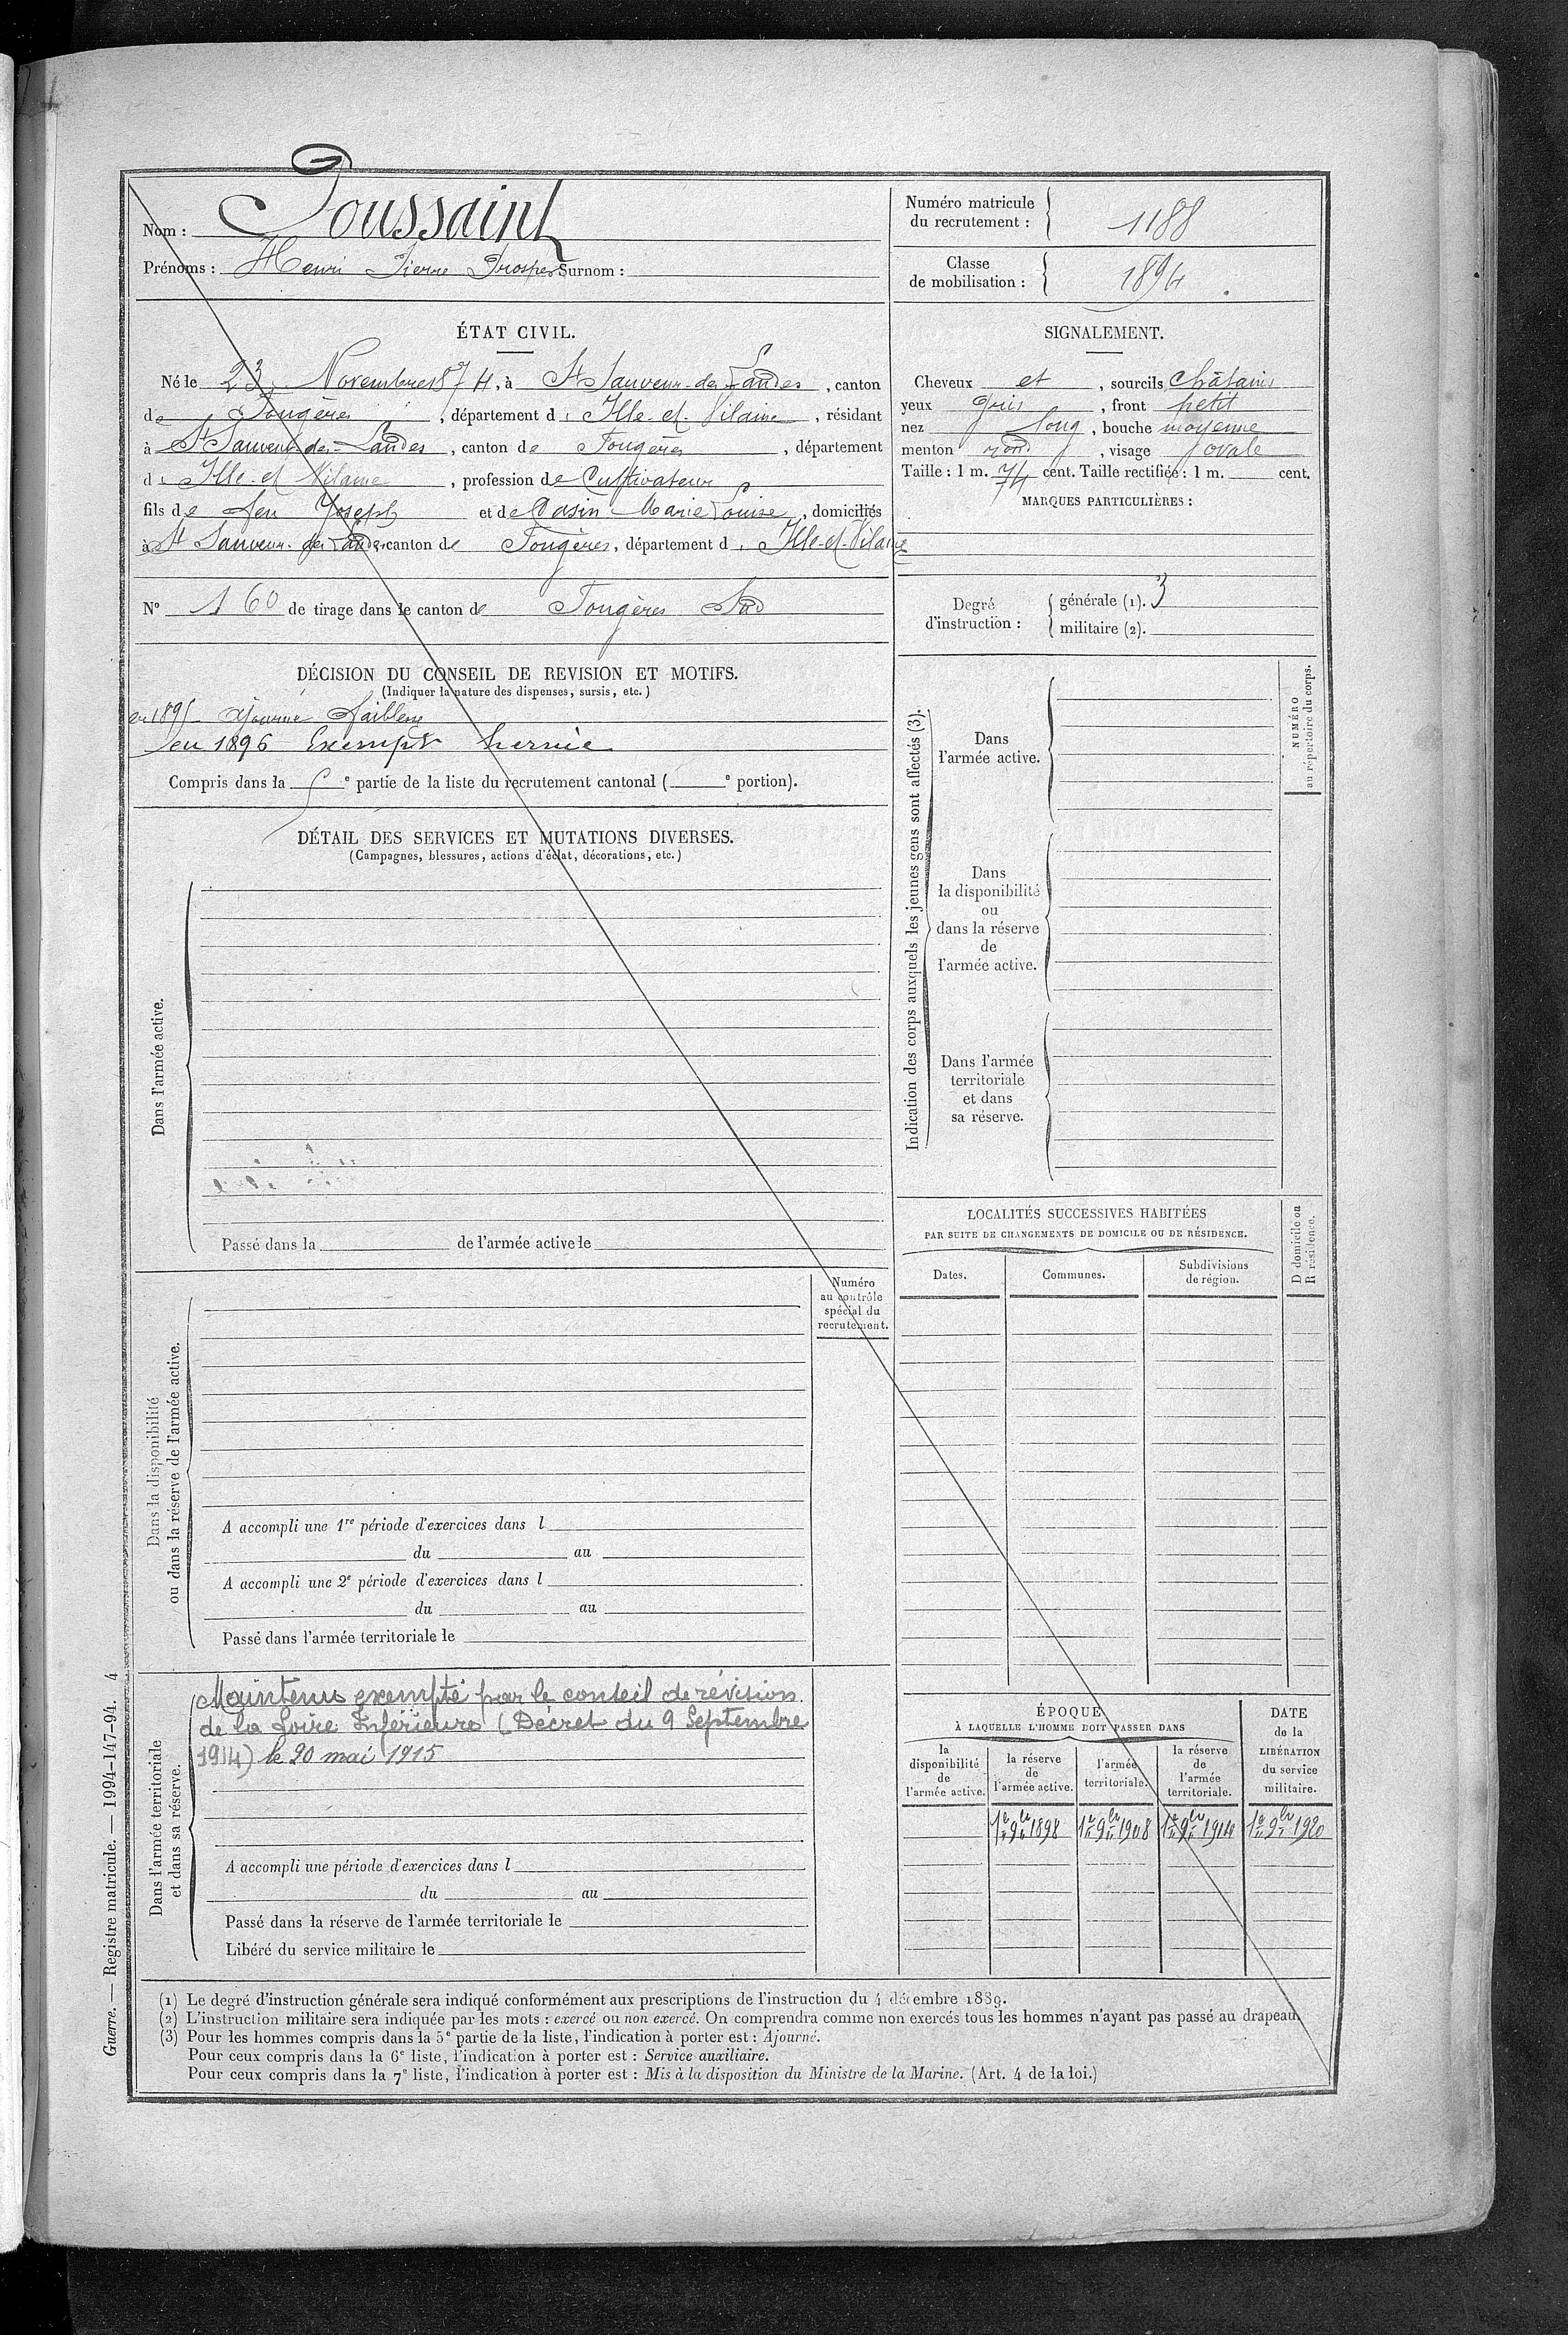 Nom : Toussaint
Prénoms : Henri Pierre Prosper Surnom :
Numéro matricule
du recrutement : 1188
Classe
de mobilisation : 1894
ÉTAT CIVIL.
Né le 23 Novembre 1874, à St Sauveur-des-Landes, canton
de Fougères, département d Ille-et-Vilaine, résidant
à St Sauveur-des-Landes, canton de Fougères, département
d Ille-et-Vilaine, profession de Cultivateur
fils de feu Joseph et de Marie Louise, domiciliés
à St Sauveur-des-Landes canton de Fougères, département d Ille-et-Vilaine
N° 160 de tirage dans le canton de Fougères Sud
SIGNALEMENT.
Cheveux et, sourcils châtains
yeux gris, front petit
nez long, bouche moyenne
menton rond, visage ovale
Taille : 1 m. 74 cent. Taille rectifiée : 1 m. cent.
MARQUES PARTICULIÈRES :
Degré
d'instruction :
générale (1). 3
militaire (2).
DÉCISION DU CONSEIL DE REVISION ET MOTIFS.
(Indiquer la nature des dispenses, sursis, etc.)
en 1895 ajourné faiblesse
en 1896 Exempt hernie
Compris dans la e partie de la liste du recrutement cantonal ( e portion).
DÉTAIL DES SERVICES ET MUTATIONS DIVERSES.
(Campagnes, blessures, actions d'éclat, décorations, etc.)
Dans l'armée active.
Passé dans la de l'armée active le
Indication des corps auxquels les jeunes gens sont affectés (3).
Dans
l'armée active.
Dans
la disponibilité
ou
dans la réserve
de
l'armée active.
Dans l'armée
territoriale
et dans
sa réserve.
NUMÉRO
au répertoire du corps.
LOCALITÉS SUCCESSIVES HABITÉES
PAR SUITE DE CHANGEMENTS DE DOMICILE OU DE RÉSIDENCE.
Dates.
Communes.
Subdivisions
de région.
D domicile ou
R résidence.
Dans la disponibilité
ou dans la réserve de l'armée active.
Numéro
au contrôle
spécial du
recrutement.
A accompli une 1re période d'exercices dans l
du au
A accompli une 2e période d'exercices dans l
du au
Passé dans l'armée territoriale le
Dans l'armée territoriale
et dans sa réserve.
Maintenu exempté par le conseil de révision
de la Loire Inférieure (Décret du 9 Septembre
1914) le 20 mai 1915
A accompli une période d'exercices dans l
du au
Passé dans la réserve de l'armée territoriale le
Libéré du service militaire le
ÉPOQUE
À LAQUELLE L'HOMME DOIT PASSER DANS
la
disponibilité
de
l'armée active.
la réserve
de
l'armée active.
l'armée
territoriale.
la réserve
de
l'armée
territoriale.
DATE
de la
LIBÉRATION
du service
militaire.
1er 9bre 1898
1er 9bre 1908
1er 9bre 1914
1er 9bre 1920
(1) Le degré d'instruction générale sera indiqué conformément aux prescriptions de l'instruction du 4 décembre 1889.
(2) L'instruction militaire sera indiquée par les mots : exercé ou non exercé. On comprendra comme non exercés tous les hommes n'ayant pas passé au drapeau.
(3) Pour les hommes compris dans la 5e partie de la liste, l'indication à porter est : Ajourné.
Pour ceux compris dans la 6e liste, l'indication à porter est : Service auxiliaire.
Pour ceux compris dans la 7e liste, l'indication à porter est : Mis à la disposition du Ministre de la Marine. (Art. 4 de la loi.)
Guerre. — Registre matricule. — 1994-147-94. 4